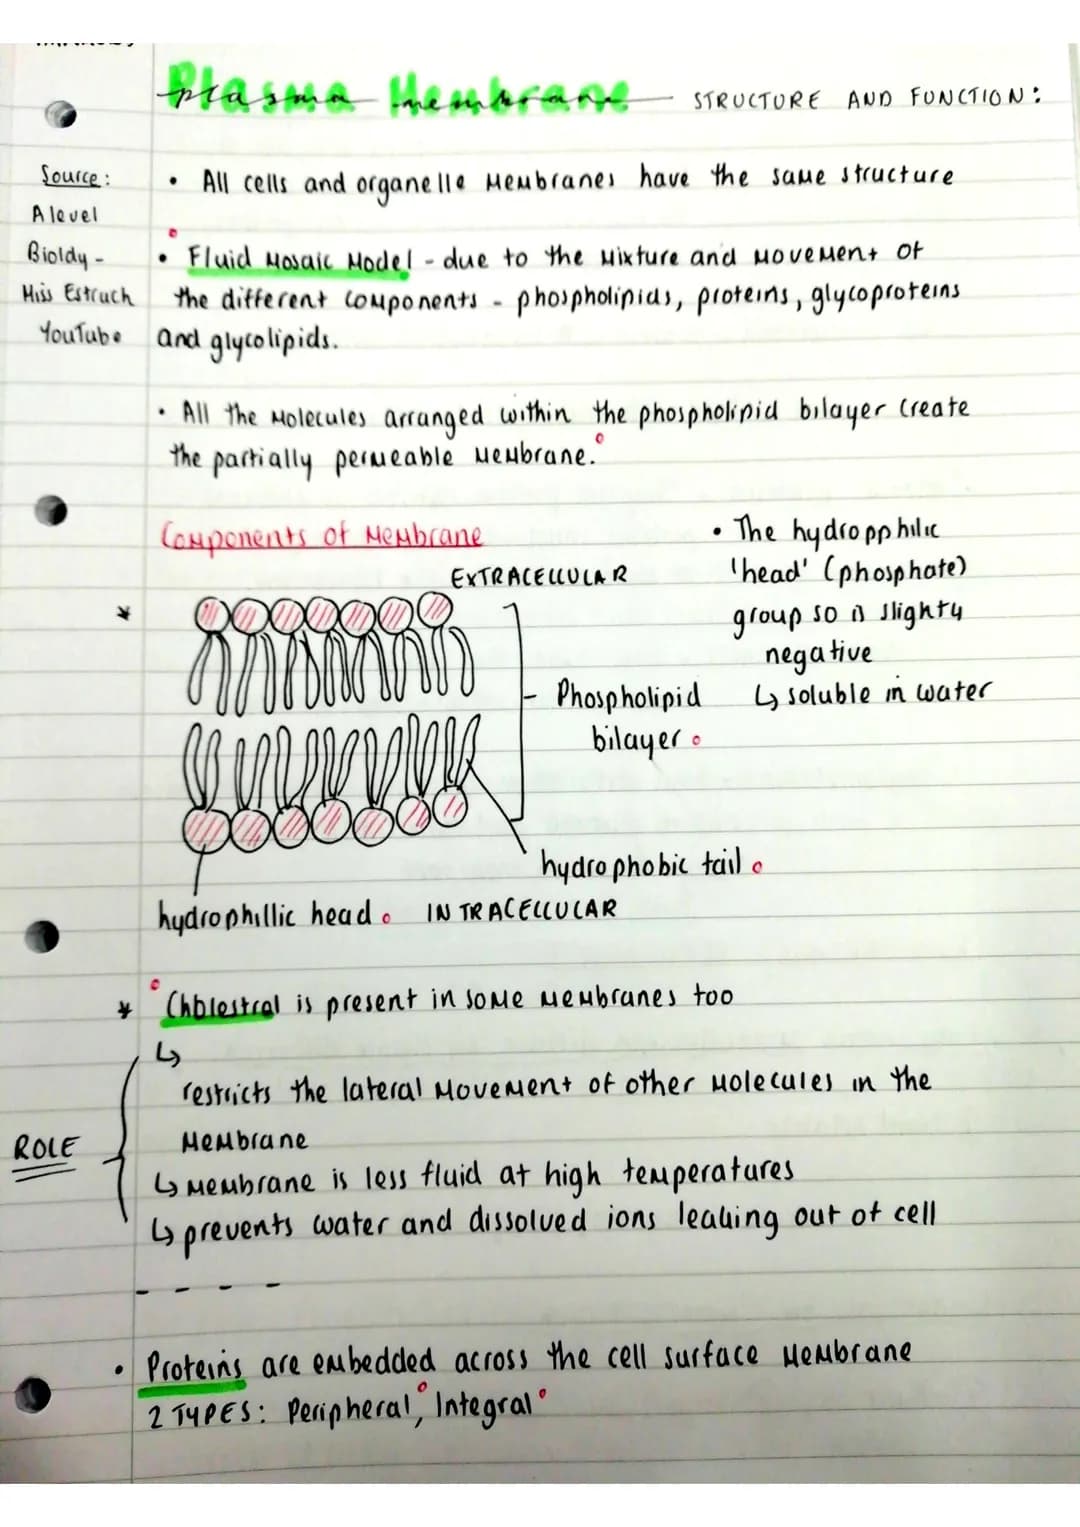 Plasma Membrane STRUCTURE AND FUNCTION:
Source:
Alevel
Bioldy -
Miss Estruch
YouTube
• All cells and organelle membranes have the same structure
• Fluid Mosaic Model - due to the mixture and movement of
the different components - phospholipids, proteins, glycoproteins
and glycolipids.
• All the molecules arranged within the phospholipid bilayer create
the partially permeable membrane.
Components of Membrane
EXTRACELLULAR
• The hydropphilic
'head' (phosphate)
group so is slighty
negative
↳ soluble in water
Phospholipid
bilayer
hydrophobic tail
hydrophillic head
INTRACELLULAR
* Cholestral is present in some membranes too
↳
restricts the lateral movement of other molecules in the
membrane
ROLE
↳ membrane is less fluid at high temperatures
↳ prevents water and dissolved ions leaking out of cell
• Proteins are embedded across the cell surface membrane
2 TYPES: Peripheral, Integral